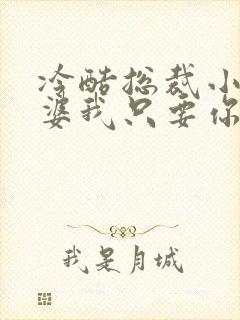 冷酷总裁小
婆我只要你
我是月城